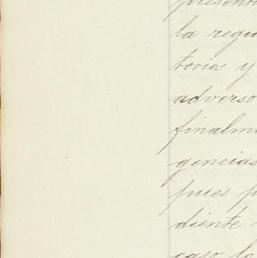 presenta
la requi
torios y
adverso
finalme
gencias
pues p
diente
caso la